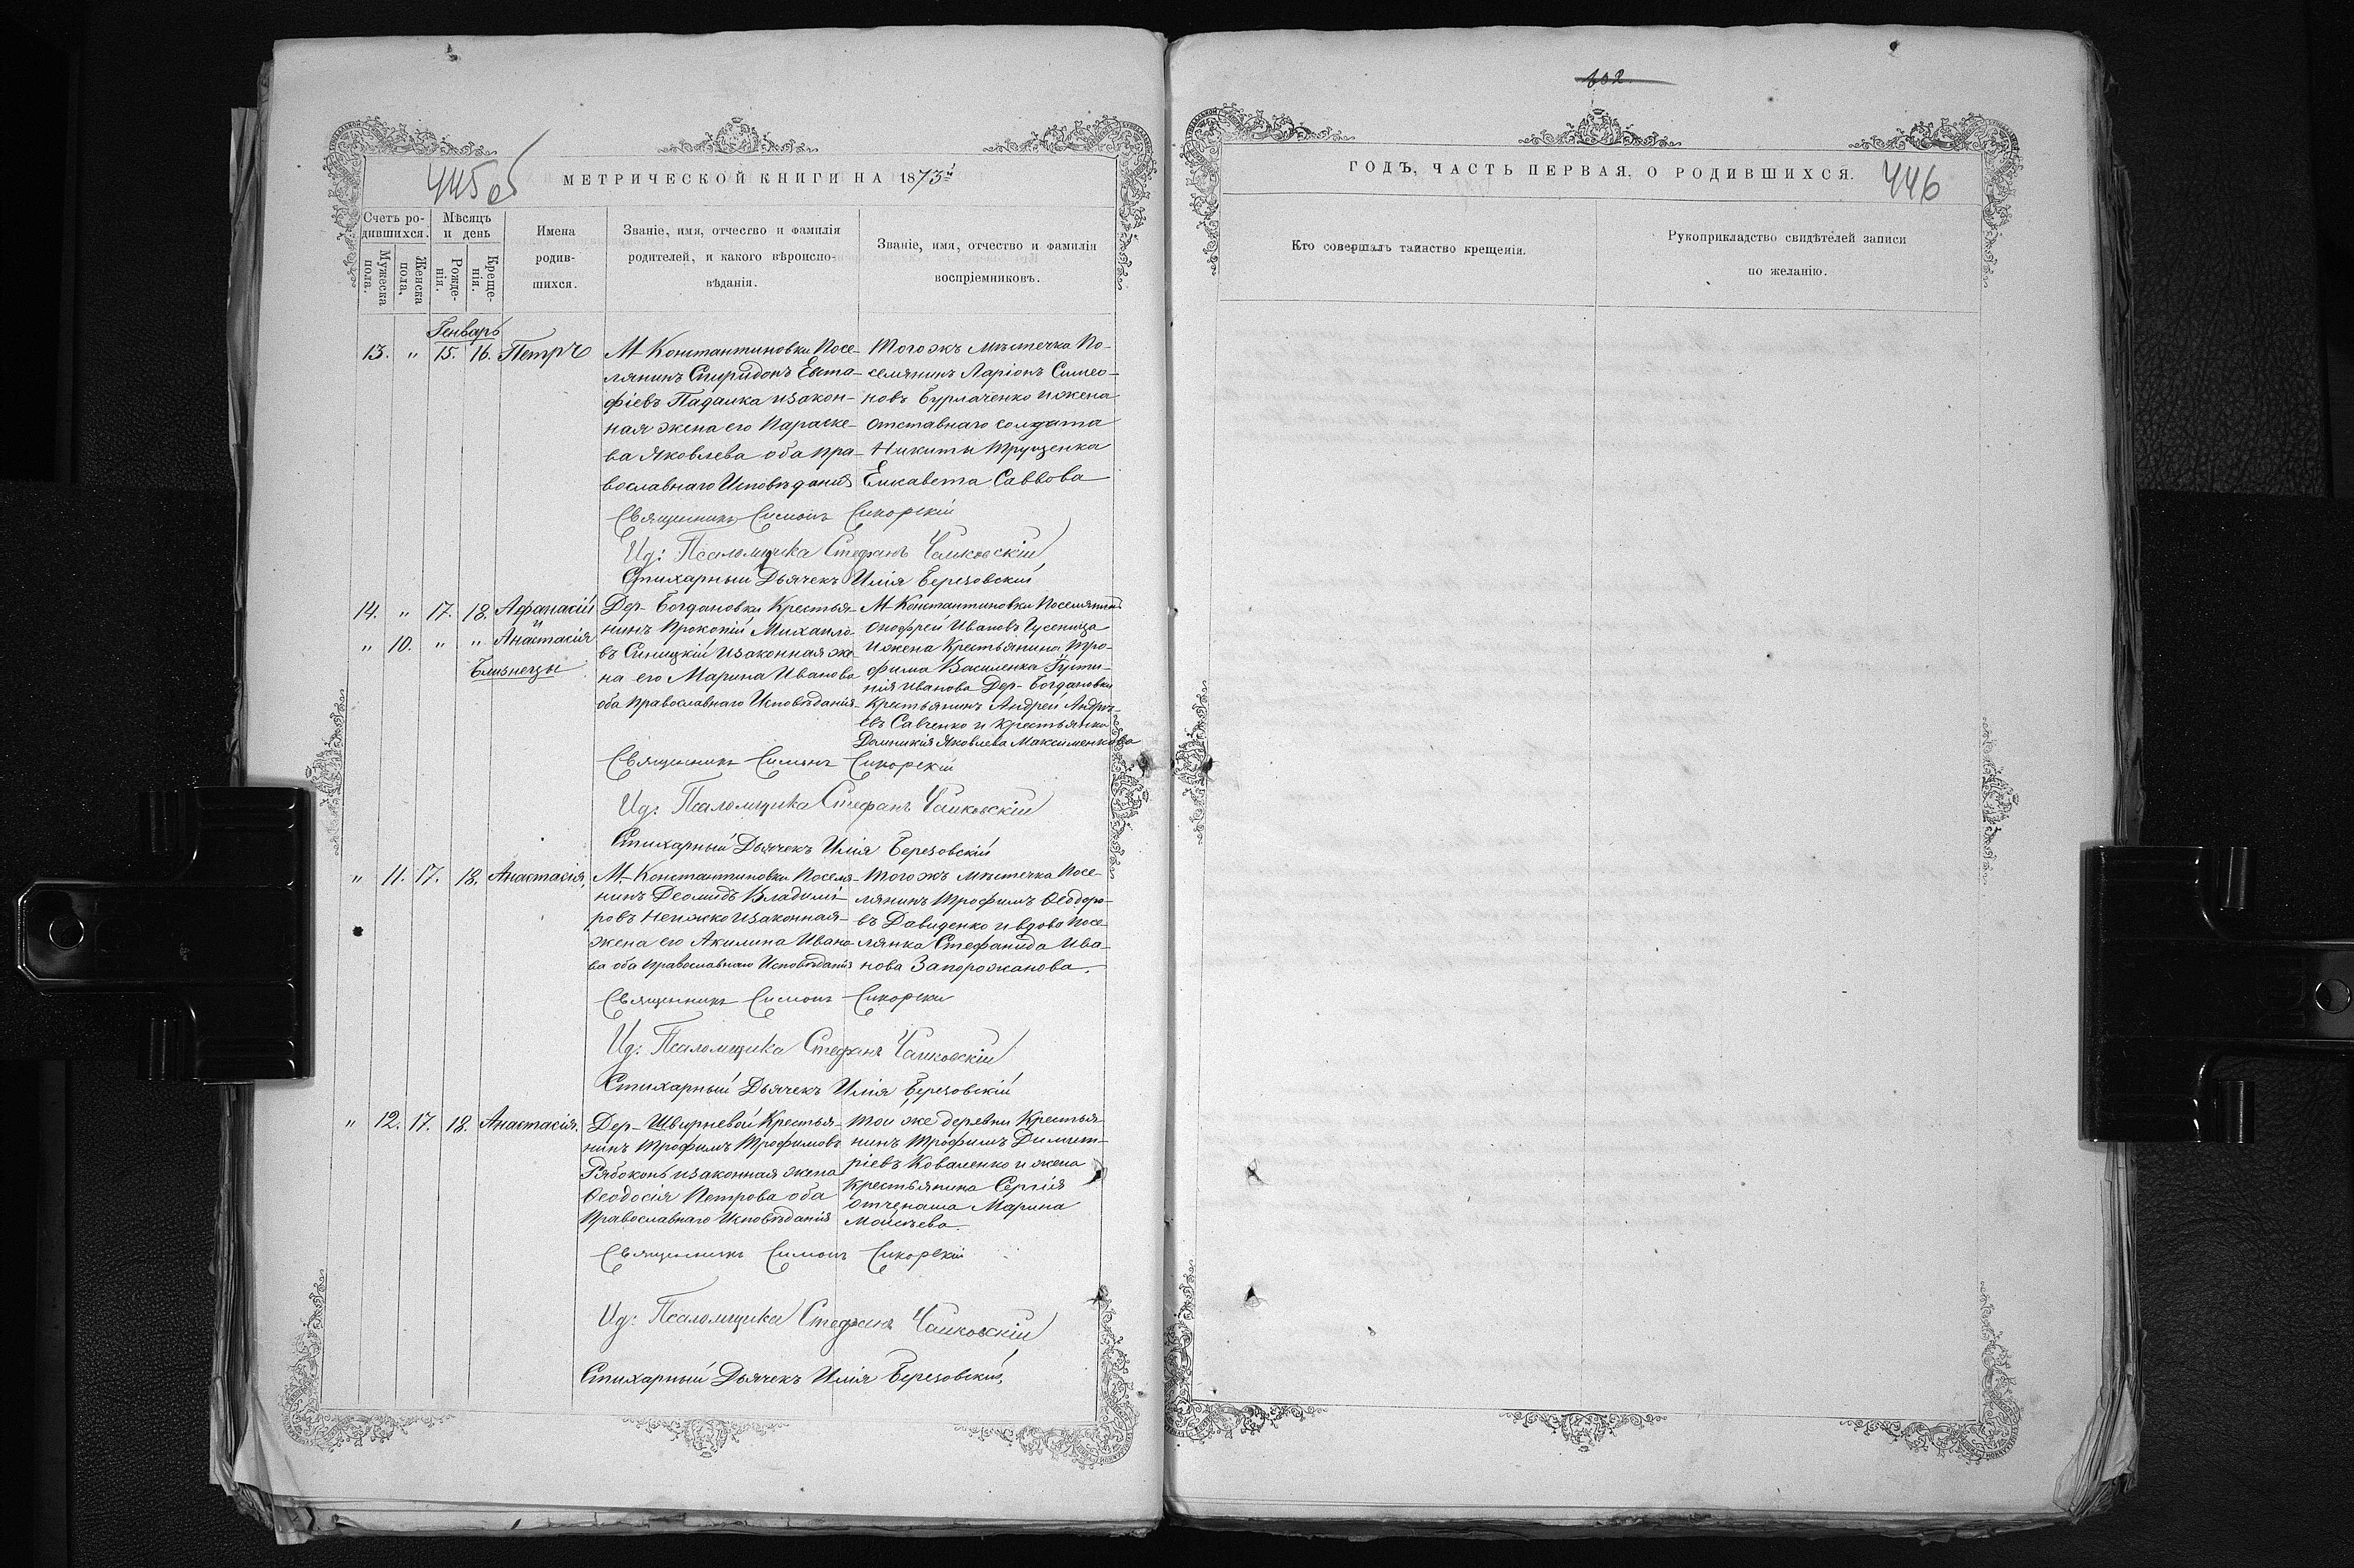 445 об
МЕТРИЧЕСКОЙ КНИГИ НА 1873й
Счетъ ро-
дившихся.
Мужеска пола.
Женска пола.
Мѣсяцъ
и день
Рожде-
нія.
Креще-
нія.
Имена
родив-
шихся.
Званіе, имя, отчество и фамилія
родителей, и какого вѣроиспо-
вѣданія.
Званіе, имя, отчество и фамилія
воспріемниковъ.
Генварь
13. " 15. 16. Петръ
М- Константиновки Посе-
лянинъ Спиридонъ Евста-
фіевъ Падалка изакон-
ная жена его Параске-
ва Яковлева оба пра-
вославнаго Исповѣданія
Тогожъ мѣстечка По-
селянинъ Ларіонъ Симео-
новъ Бурлаченко и жена
отставнаго солдата
Никиты Трущенка
Елисавета Саввова
Священникъ Симонъ Сикорскій
Ид: Псаломщика Стефанъ Чайковскій
Стихарный Дьячекъ Илія Березовскій
14. " 17. 18. Афанасій
и
" 10. " " Анастасія
Близнецы
Дер- Богдановки Крестья-
нинъ Прокопій Михайло-
въ Синицкій изаконная же-
на его Марина Иванова
оба православнаго Исповѣданія
М- Константиновки Поселянинъ
Онофрей Ивановъ Гусеница
и жена Крестьянина Тро-
фима Василенка Густи-
нія Иванова Дер- Богдановки
Крестьянинъ Андрей Андре-
евъ Савченко и крестьянка
Домникія Яковлева Максименкова
Священникъ Симонъ Сикорскій
Ид: Псаломщика Стефанъ Чайковскій
Стихарный Дьячекъ Илія Березовскій
" 11. 17. 18. Анастасія,
М- Константиновки Поселя-
нинъ Деомидъ Владимі-
ровъ Нежко изаконная
жена его Акилина Ивано-
ва оба православнаго Исповѣданія
Тогожъ мѣстечка Посе-
лянинъ Трофимъ Ѳеодоро-
въ Давиденко и вдова посе-
лянка Стефанида Ива-
нова Запорожанова.
Священникъ Симонъ Сикорскій
Ид: Псаломщика Стефанъ Чайковскій
Стихарный Дьячекъ Илія Березовскій
" 12. 17. 18. Анастасія.
Дер- Шварневой Крестья-
нинъ Трофимъ Трофимовъ
Рябоконь изаконная жена
Ѳеодосія Петрова оба
Православнаго Исповѣданія
Той же деревни Крестья-
нинъ Трофимъ Димит-
ріевъ Коваленко и жена
крестьянина Сергія
Отченаша Марина
Моисѣева
Священникъ Симонъ Сикорскій
Ид: Псаломщика Стефанъ Чайковскій
Стихарный Дьячекъ Илія Березовскій,
602
ГОДЪ, ЧАСТЬ ПЕРВАЯ, О РОДИВШИХСЯ.
446
Кто совершалъ таинство крещенія.
Рукоприкладство свидѣтелей записи
по желанію.